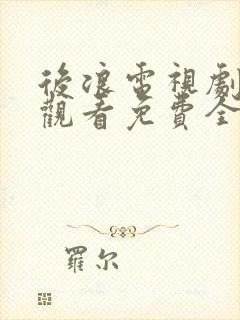 後浪電視劇
觀看免費全
羅尔